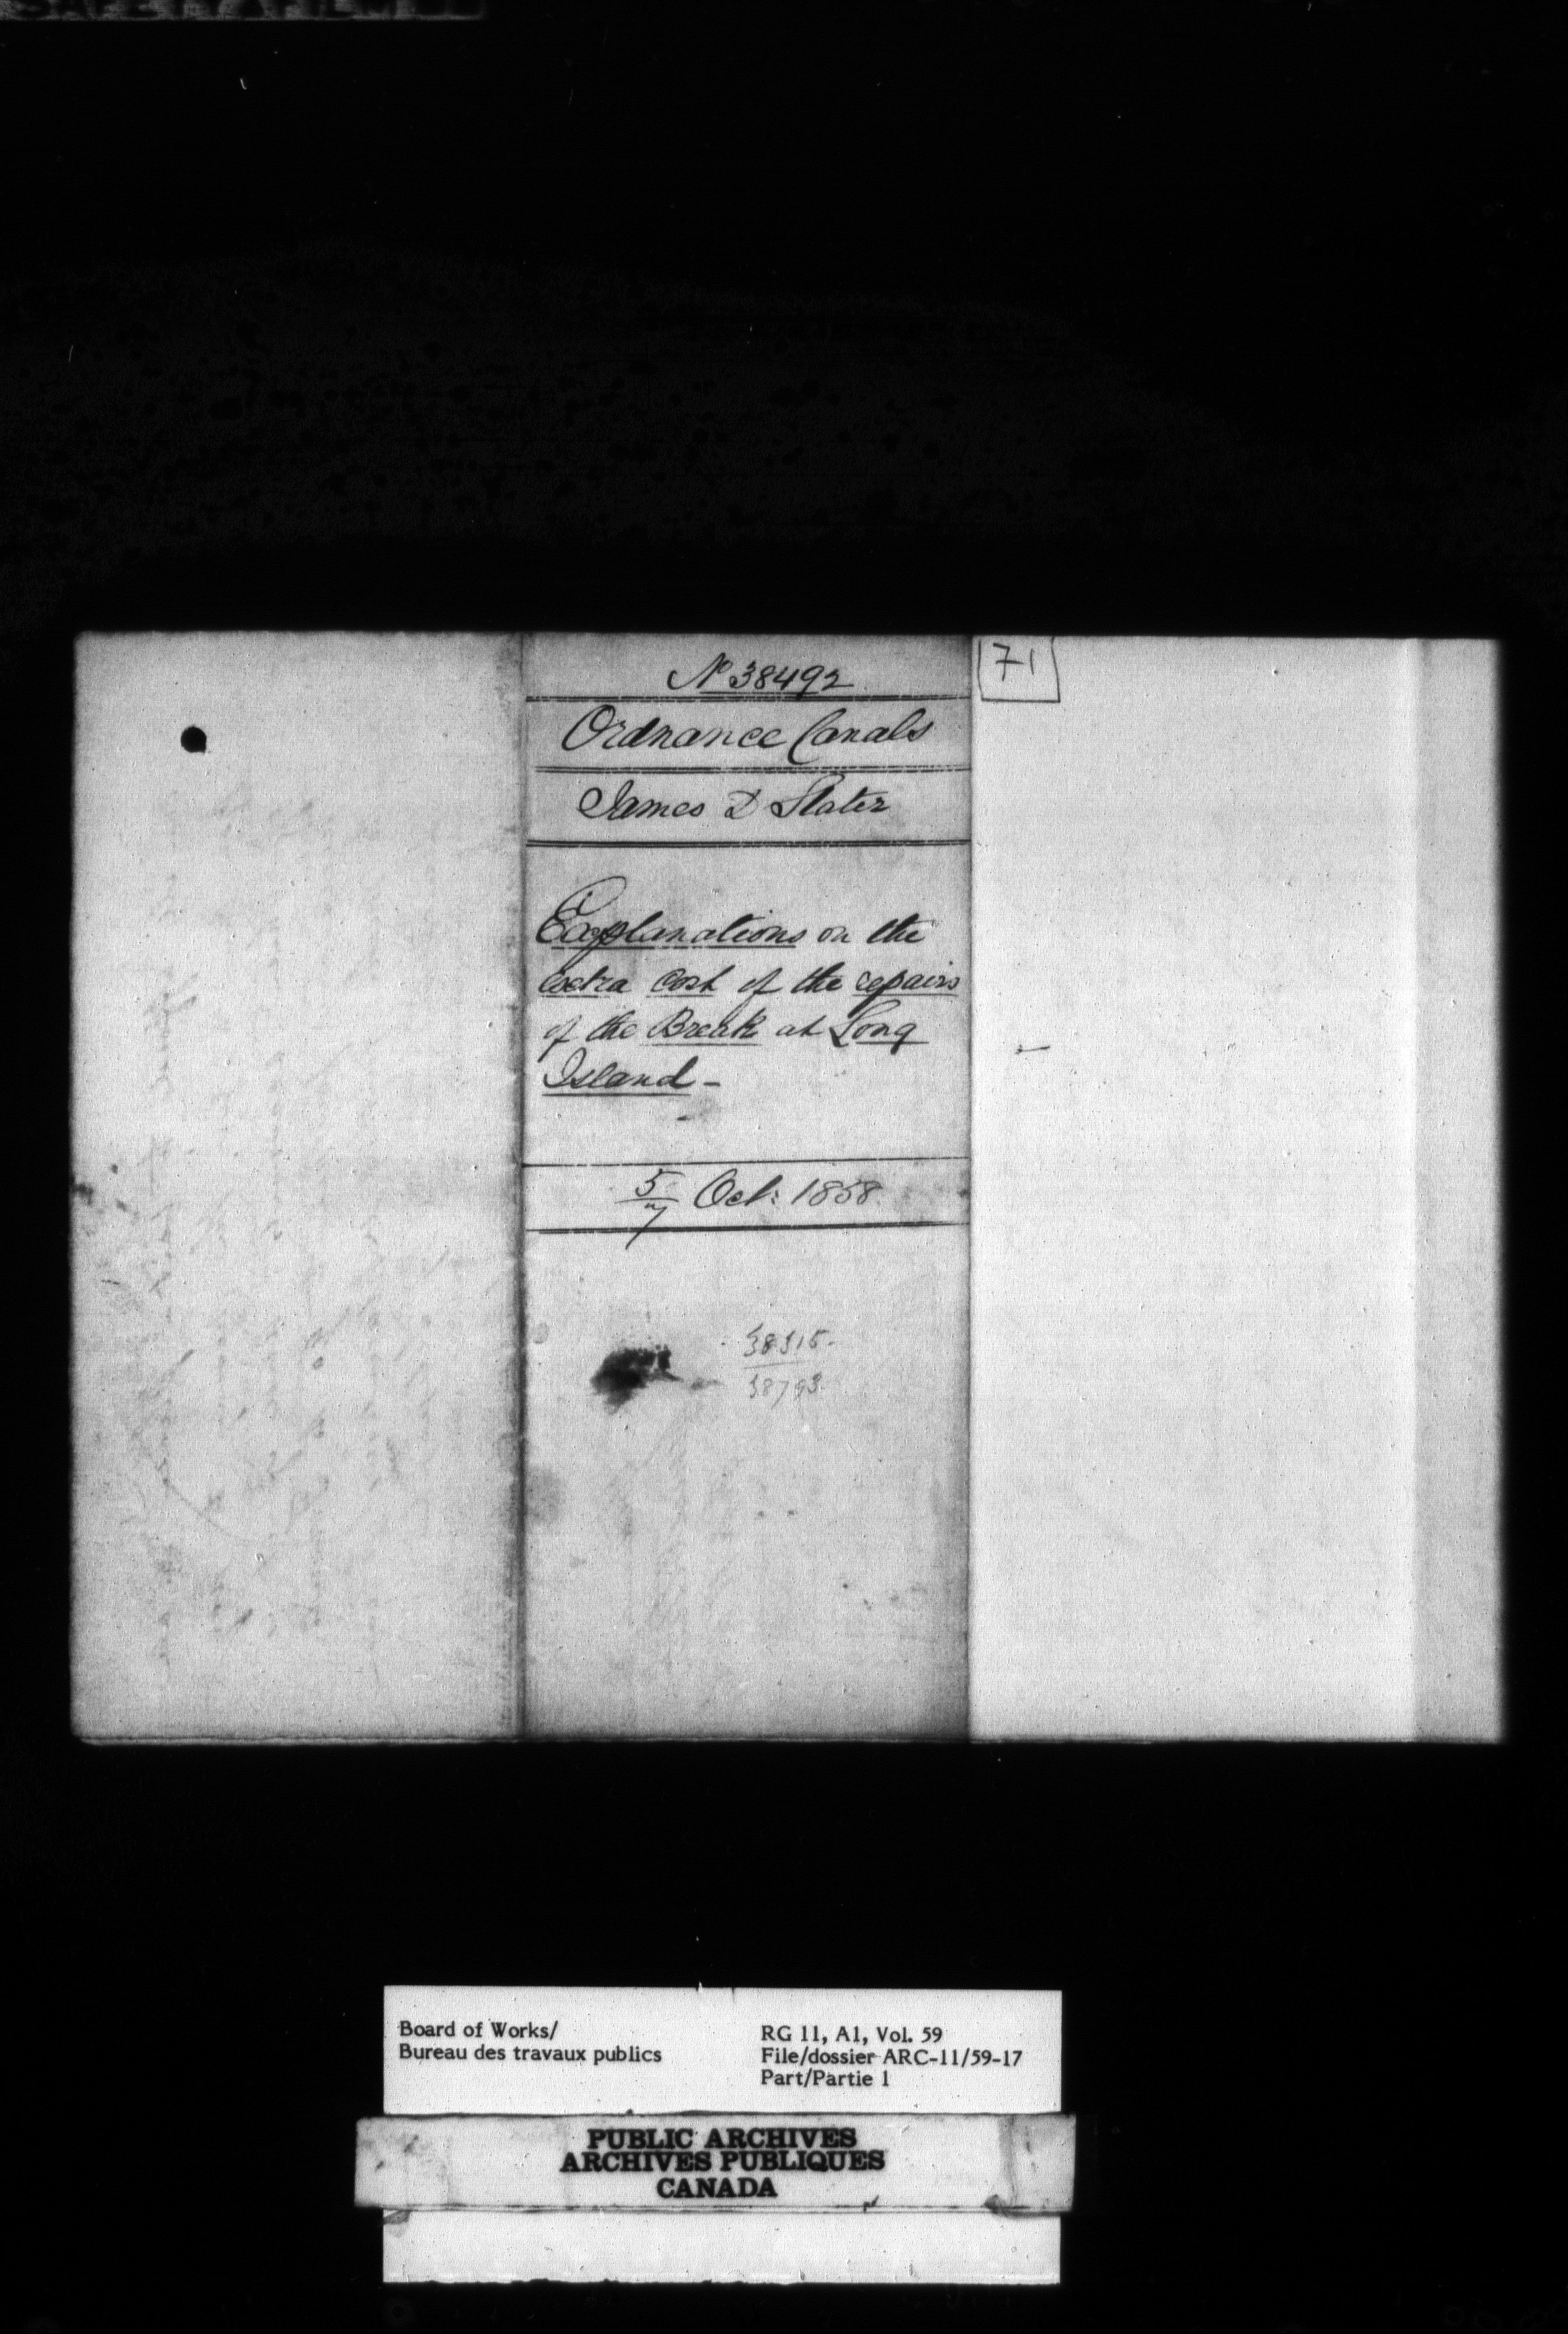 No 38492
Ordnance Canals
James D Slater
Explanations on the
extra cost of the repairs
of the Break at Long
Island -
5/7 Oct: 1858.
38315.
38793.
71
Board of Works/
Bureau des travaux publics
RG 11, A1, Vol. 59
File/dossier ARC-11/59-17
Part/Partie 1
PUBLIC ARCHIVES
ARCHIVES PUBLIQUES
CANADA